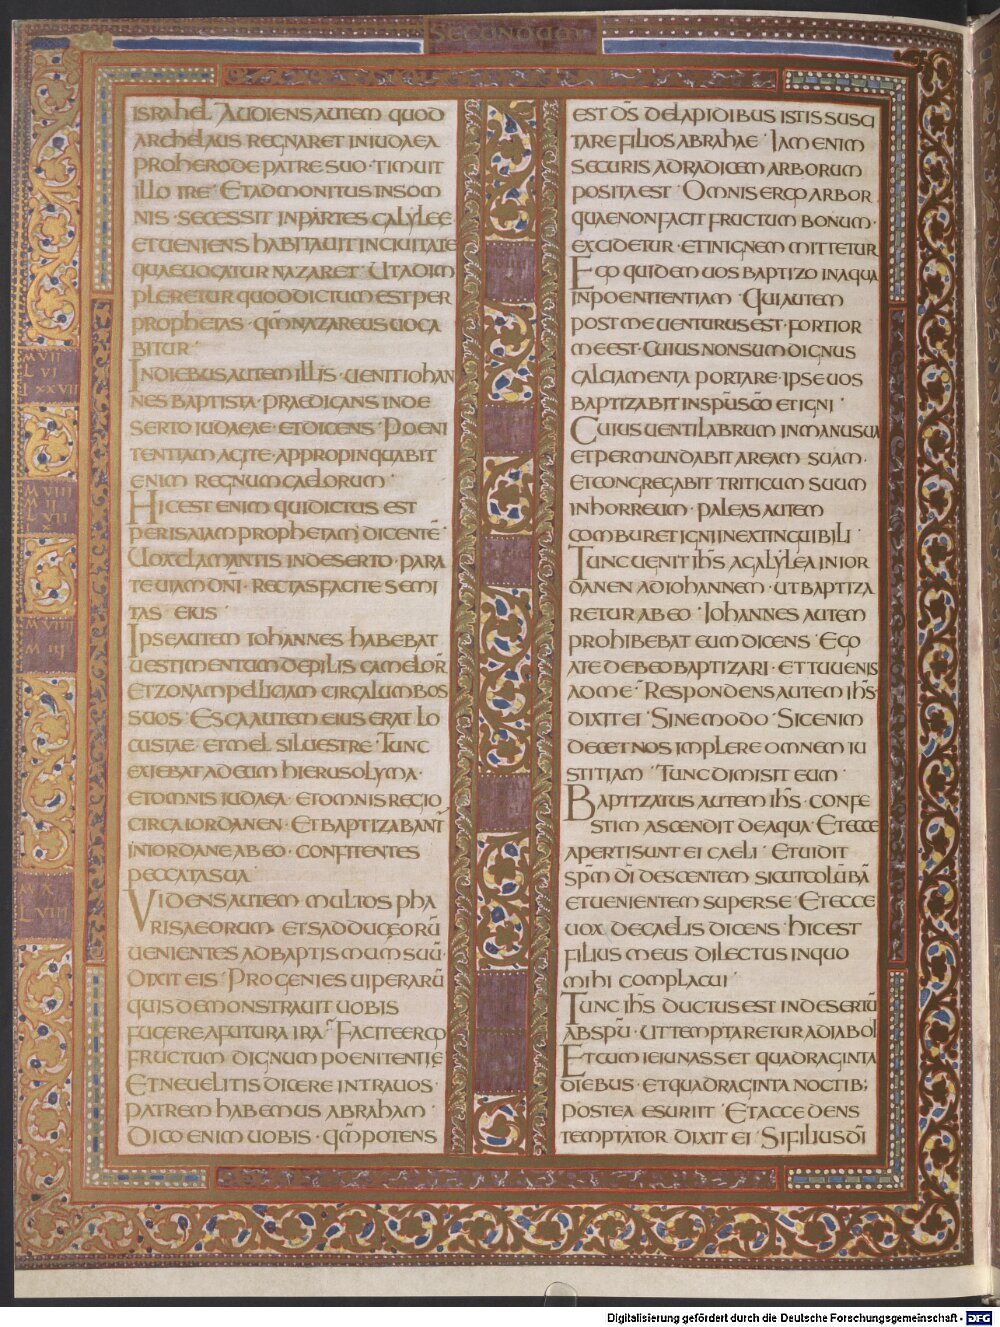 SECUNDUM
ISRAHEL · AUDIENS AUTEM QUOD
ARCHELAUS REGNARET IN IUDAEA
PRO HERODE PATRE SUO · TIMUIT
ILLO IRE · ET ADMONITUS IN SOM
NIS · SECESSIT IN PARTES GALYLEE
ET UENIENS HABITAUIT IN CIUITATE
QUAE UOCATUR NAZARET · UT ADIM
PLERETUR QUOD DICTUM EST PER
PROPHETAS · QM̄ NAZAREUS UOCA
BITUR ·
IN DIEBUS AUTEM ILLIS · UENIT IOHAN
NES BAPTISTA · PRAEDICANS IN DE
SERTO IUDAEAE · ET DICENS · POENI
TENTIAM AGITE · APPROPINQUABIT
ENIM REGNUM CAELORUM ·
HIC EST ENIM QUI DICTUS EST
PER ISAIAM PROPHETAM DICENTĒ ·
UOX CLAMANTIS IN DESERTO · PARA
TE UIAM DNI · RECTAS FACITE SEMI
TAS EIUS ·
IPSE AUTEM IOHANNES HABEBAT
UESTIMENTUM DE PILIS CAMELOR̄
ET ZONAM PELLICIAM CIRCA LUMBOS
SUOS · ESCA AUTEM EIUS ERAT LO
CUSTAE · ET MEL SILUESTRE · TUNC
EXIEBAT AD EUM HIERUSOLYMA ·
ET OMNIS IUDAEA · ET OMNIS REGIO
CIRCA IORDANEN · ET BAPTIZABANT̄
IN IORDANE AB EO · CONFITENTES
PECCATA SUA ·
VIDENS AUTEM MULTOS PHA
RISAEORUM · ET SADDUCEORŪ
UENIENTES AD BAPTISMUM SUŪ ·
DIXIT EIS · PROGENIES UIPERARŪ
QUIS DEMONSTRAUIT UOBIS
FUGERE A FUTURA IRA · FACITE ERGO
FRUCTUM DIGNUM POENITENTIĘ
ET NE UELITIS DICERE INTRA UOS ·
PATREM HABEMUS ABRAHAM ·
DICO ENIM UOBIS · QM̄ POTENS
EST D̄S DE LAPIDIBUS ISTIS SUSCI
TARE FILIOS ABRAHAE · IAM ENIM
SECURIS AD RADICEM ARBORUM
POSITA EST · OMNIS ERGO ARBOR
QUAE NON FACIT FRUCTUM BONUM ·
EXCIDETUR · ET IN IGNEM MITTETUR
EGO QUIDEM UOS BAPTIZO IN AQUA
IN POENITENTIAM · QUI AUTEM
POST ME UENTURUS EST · FORTIOR
ME EST · CUIUS NON SUM DIGNUS
CALCIAMENTA PORTARE · IPSE UOS
BAPTIZABIT IN SPŪ SCŌ ET IGNI ·
CUIUS UENTILABRUM IN MANU SUA
ET PERMUNDABIT AREAM SUAM ·
ET CONGREGABIT TRITICUM SUUM
IN HORREUM · PALEAS AUTEM
COMBURET IGNI INEXTINGUIBILI ·
TUNC UENIT IHS̄ A GALYLEA IN IOR
DANEN AD IOHANNEM · UT BAPTIZA
RETUR AB EO · IOHANNES AUTEM
PROHIBEBAT EUM DICENS · EGO
A TE DEBEO BAPTIZARI · ET TU UENIS
AD ME · RESPONDENS AUTEM IHS̄ ·
DIXIT EI · SINE MODO · SIC ENIM
DECET NOS IMPLERE OMNEM IU
STITIAM · TUNC DIMISIT EUM ·
BAPTIZATUS AUTEM IHS̄ · CONFE
STIM ASCENDIT DE AQUA · ET ECCE
APERTI SUNT EI CAELI · ET UIDIT
SPM̄ DI DESCENTEM SICUT COLŪBĀ
ET UENIENTEM SUPER SE · ET ECCE
UOX DE CAELIS DICENS · HIC EST
FILIUS MEUS DILECTUS IN QUO
MIHI COMPLACUI ·
TUNC IHS̄ DUCTUS EST IN DESERTŪ
AB SPŪ · UT TEMPTARETUR A DIABOL
ET CUM IEIUNASSET QUADRAGINTA
DIEBUS · ET QUADRAGINTA NOCTIB;
POSTEA ESURIIT · ET ACCEDENS
TEMPTATOR DIXIT EI · SI FILIUS DĪ
M VII
L VI
I XXVII
M VIII
M X
L VIII
Digitalisierung gefördert durch die Deutsche Forschungsgemeinschaft - DFG